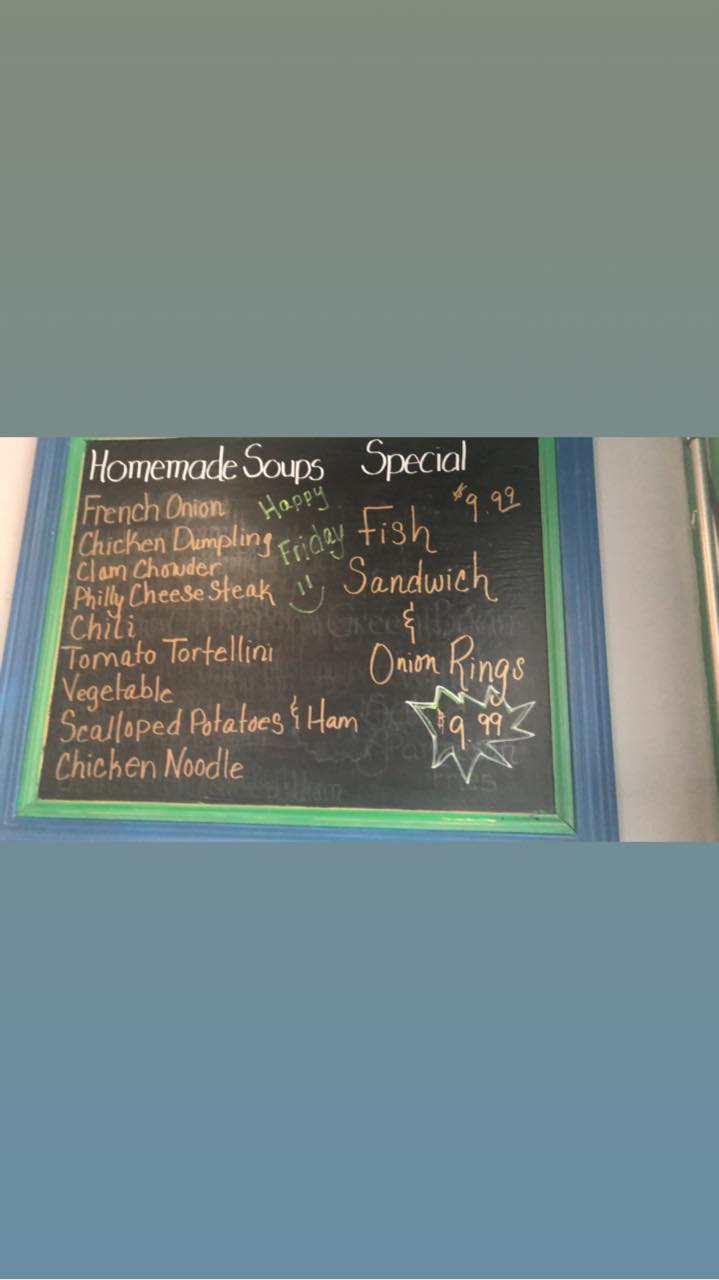 Homemade Soups
French Onion
Chicken Dumpling
Clam Chowder
Philly Cheese Steak
Chili
Tomato Tortellini
Vegetable
Scalloped Potatoes & Ham
Chicken Noodle
Happy
Friday
Special
$9.99
Fish
Sandwich
&
Onion Rings
$9.99